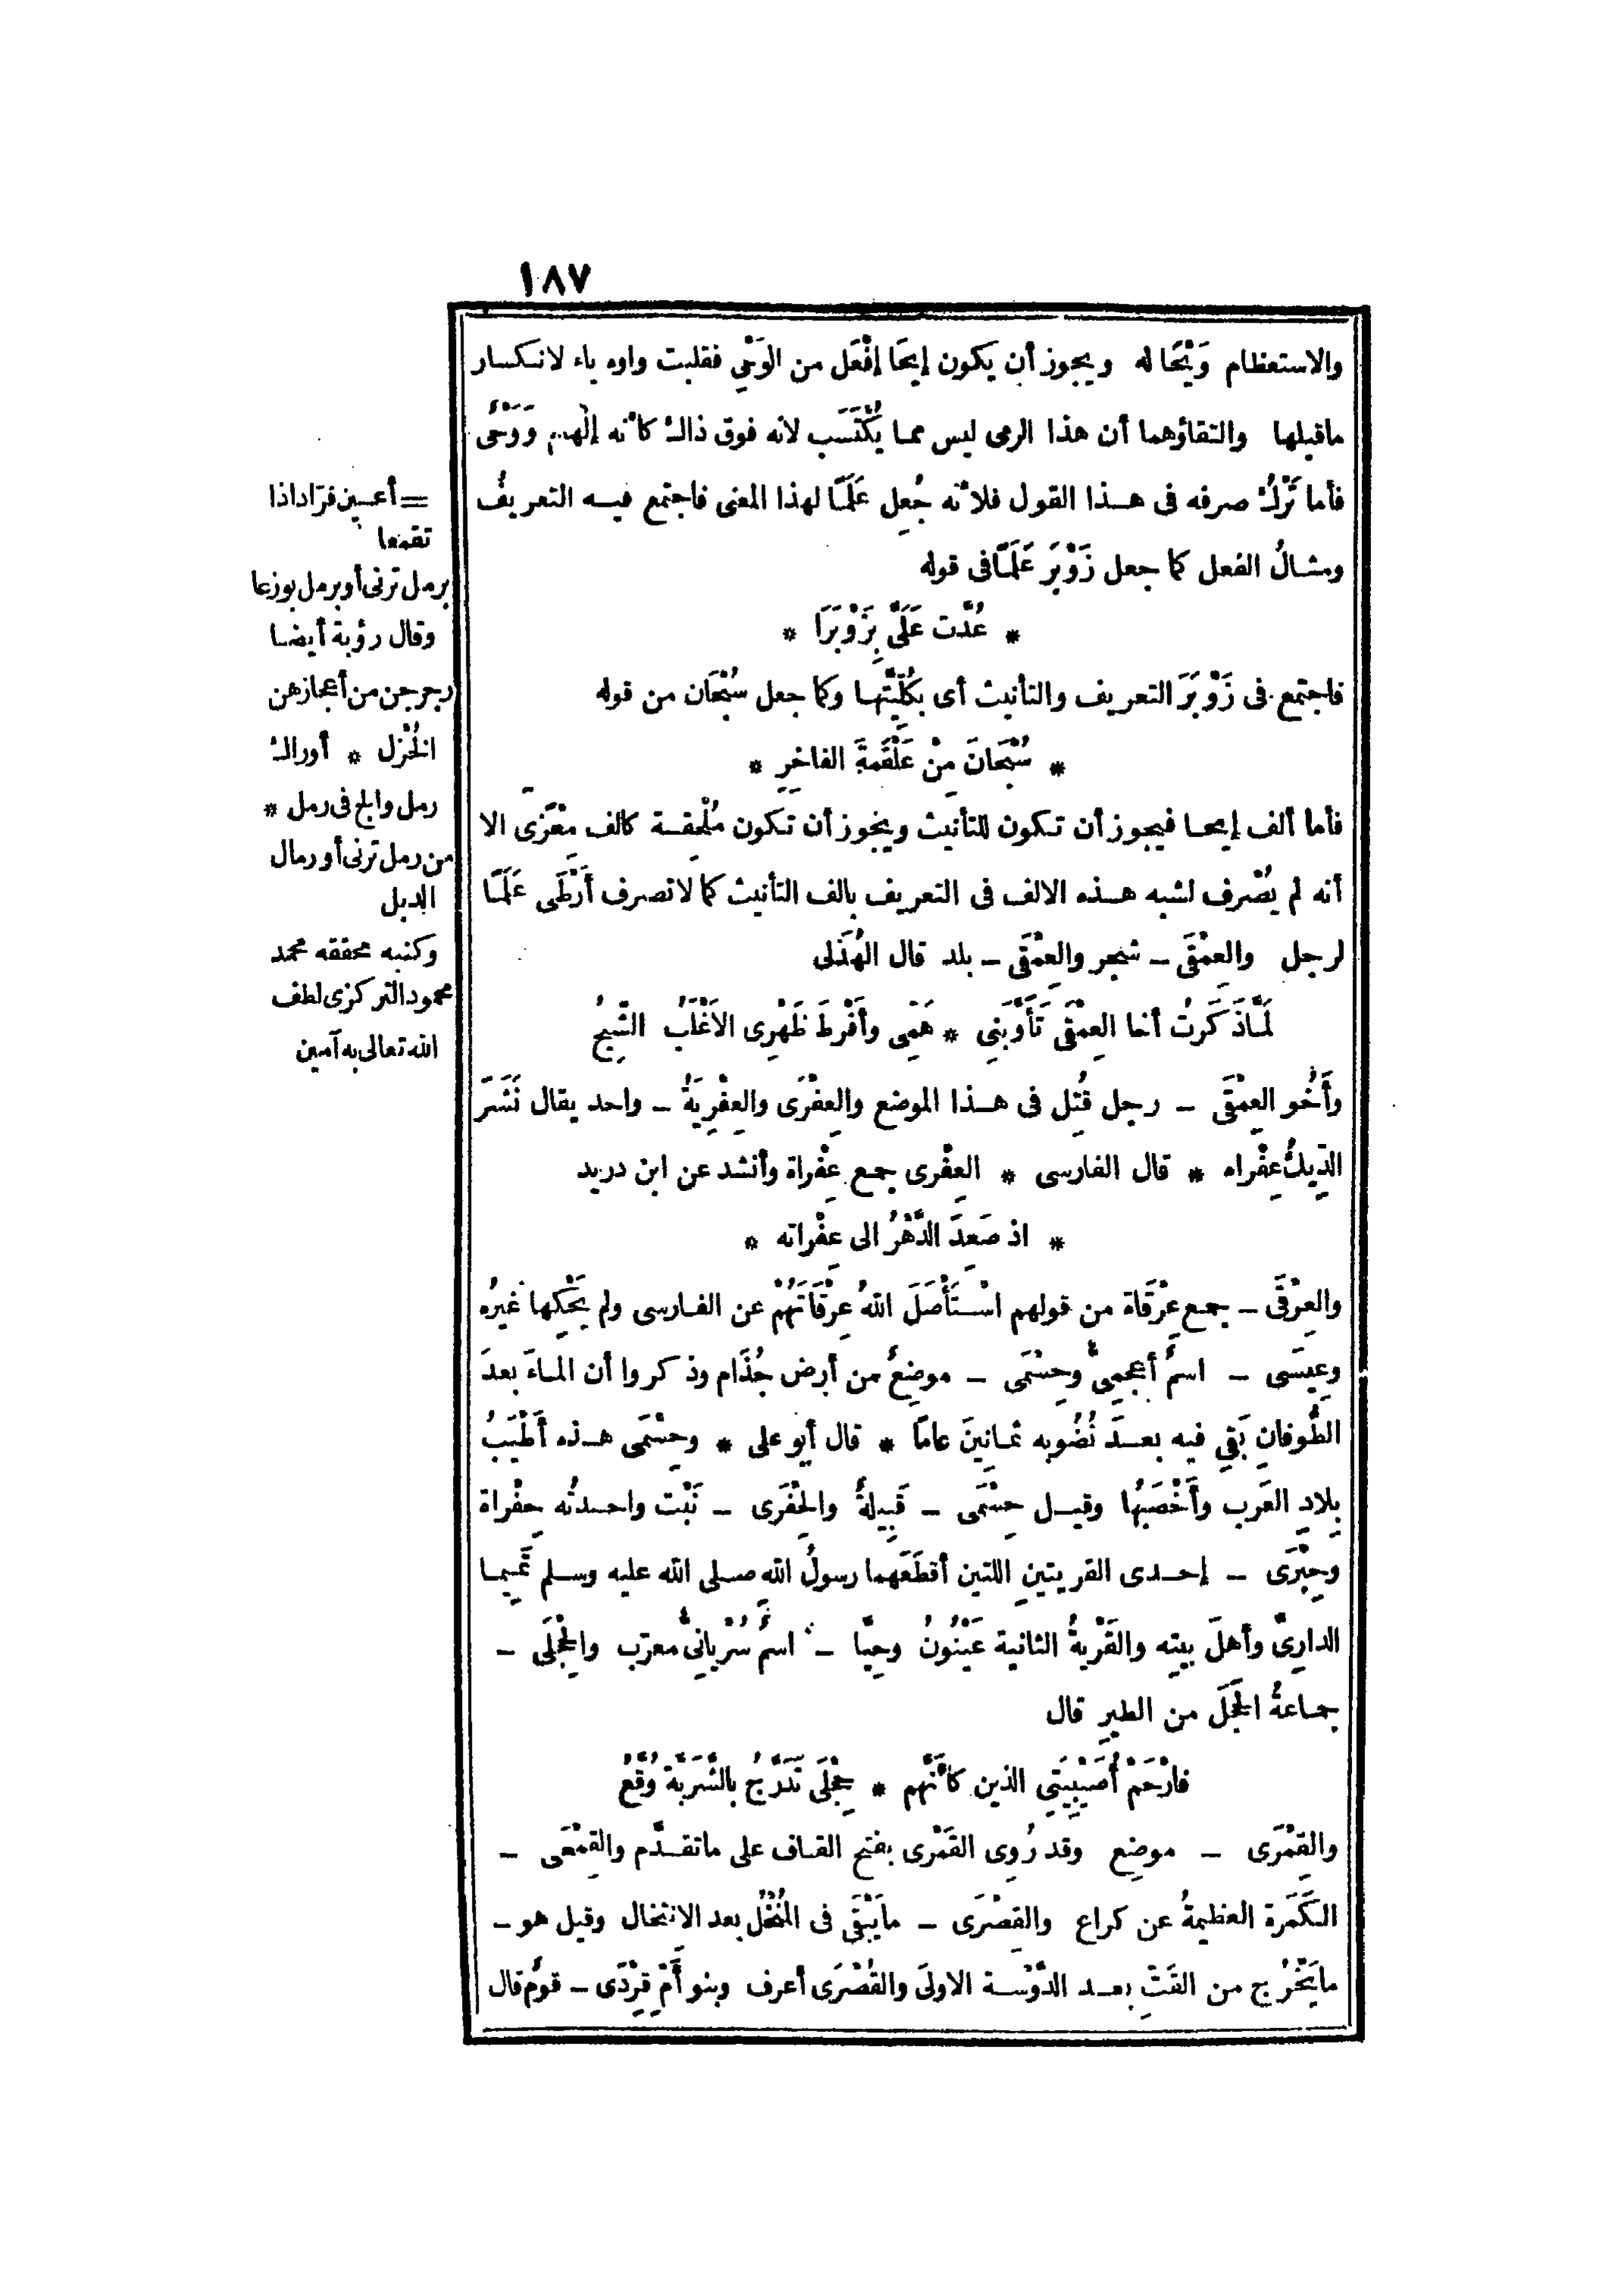 ١٨٧
والاستعظام وَيْحَا له ويجوز أن يكون إيحَا إفْعَل من الوَحْىِ فقلبت واوه ياء لانكسار
ماقبلها والتقاؤهما أن هذا الرمى ليس مما يُكْتَسَب لانه فوق ذالك كأنه إلْهام وَوَحْىُ
فأما تَرْكُ صرفه فى هذا القول فلأنه جُعِل عَلَمًا لهذا المعنى فاجتمع فيه التعريفُ
ومثالُ الفعل كما جعل زَوْبَر عَلَمًا فى قوله
* عُدَّت عَلَىَّ بِزَوْبَرَا *
فاجتمع فى زَوْبَرَ التعريف والتأنيث أى بكُلِّيَّتِها وكما جعل سُبْحَان من قوله
* سُبْحَانَ مِنْ عَلْقَمةَ الفاخرِ *
فأما ألف إيحا فيجوز أن تكون للتأنيث ويجوز أن تكون مُلْحِقة كالف مِعْزًى الا
أنه لم يُصْرف لشبه هذه الالف فى التعريف بالف التأنيث كما لا تصرف أَرْطَى عَلَمًا
لرجل والعِمْقَى ــ شجر والعِمْقَى ــ بلد قال الهُذَلى
لَمَّا ذَكَرتُ أخا العِمْقَى تَأَوَّبَنِى * هَمِّى وأَفْرطَ ظَهْرِى الاَغْلَبُ الشِّيحُ
وأَخُو العِمْقَى ــ رجل قُتِل فى هذا الموضع والعِفْرَى والعِفْرِيَةُ ــ واحد يقال نَشَرَ
الدِّيكُ عِفْراه * قال الفارسى * العِفْرى جمع عِفْراة وأنشد عن ابن دريد
* اذ صَعِدَ الدَّهْرُ الى عِفْراته *
والعِرْقَى ــ جمع عِرْقَاة من قولهم اسْتَأْصَلَ اللهُ عِرْقَاتَهُمْ عن الفارسى ولم يَحْكِها غيرُه
وعِيسَى ــ اسمٌ أعجمىٌّ وحِسْمَى ــ موضعٌ من أرض جُذَام وذكروا أن الماءَ بعدَ
الطُّوفانِ بَقِى فيه بعدَ نُضُوبِه ثمانينَ عامًا * قال أبو على * وحِسْمَى هذه أَطْيَبُ
بِلادِ العَرب وأَخْصَبُها وقيل حِسْمَى ــ قَبِيلةٌ والحِفْرَى ــ نَبْت واحدتُه حِفْراة
وحِبْرَى ــ إحدى القريتينِ اللتين أقطَعَهما رسولُ اللهِ صلى الله عليه وسلم تَمِيما
الدارِىَّ وأهلَ بيتِه والقَرْيةُ الثانية عَيْنُونُ وحِيَّا ــ اسمٌ سُرْيانِىٌّ معرّب والحِجْلَى ــ
جماعةُ الحَجَلَ من الطيرِ قال
فارْحَمْ أُصَيْبِيَتِى الذين كأنَّهم * حِجْلَى تَدَرَّجُ بالشَّرَبَّة وُقَّعُ
والقِمْرَى ــ موضِع وقد رُوِى القَمْرى بفتح القاف على ماتقدَّم والقِمْعَى ــ
الكَمَرة العظيمةُ عن كراع والقِصْرَى ــ مايَبْقَى فى المُنْخُل بعد الانتخال وقيل هو ــ
مايَخْرُج من القَتِّ بعد الدَّوْسة الاولَى والقُصْرَى أعرف وبنو أُمّ قِرْدَى ــ قومٌ قال
= أعين فرّاد اذا
تقمعا
برمل ترنى أو برمل بوزعا
وقال رؤبة أيضا
رجرجن من أعجازهن
الخُزْل * أوراك
رمل والج فى رمل *
من رمل ترنى أو رمال
الدبل
وكتبه محققه محمد
محمود التركزى لطف
الله تعالى به آمين